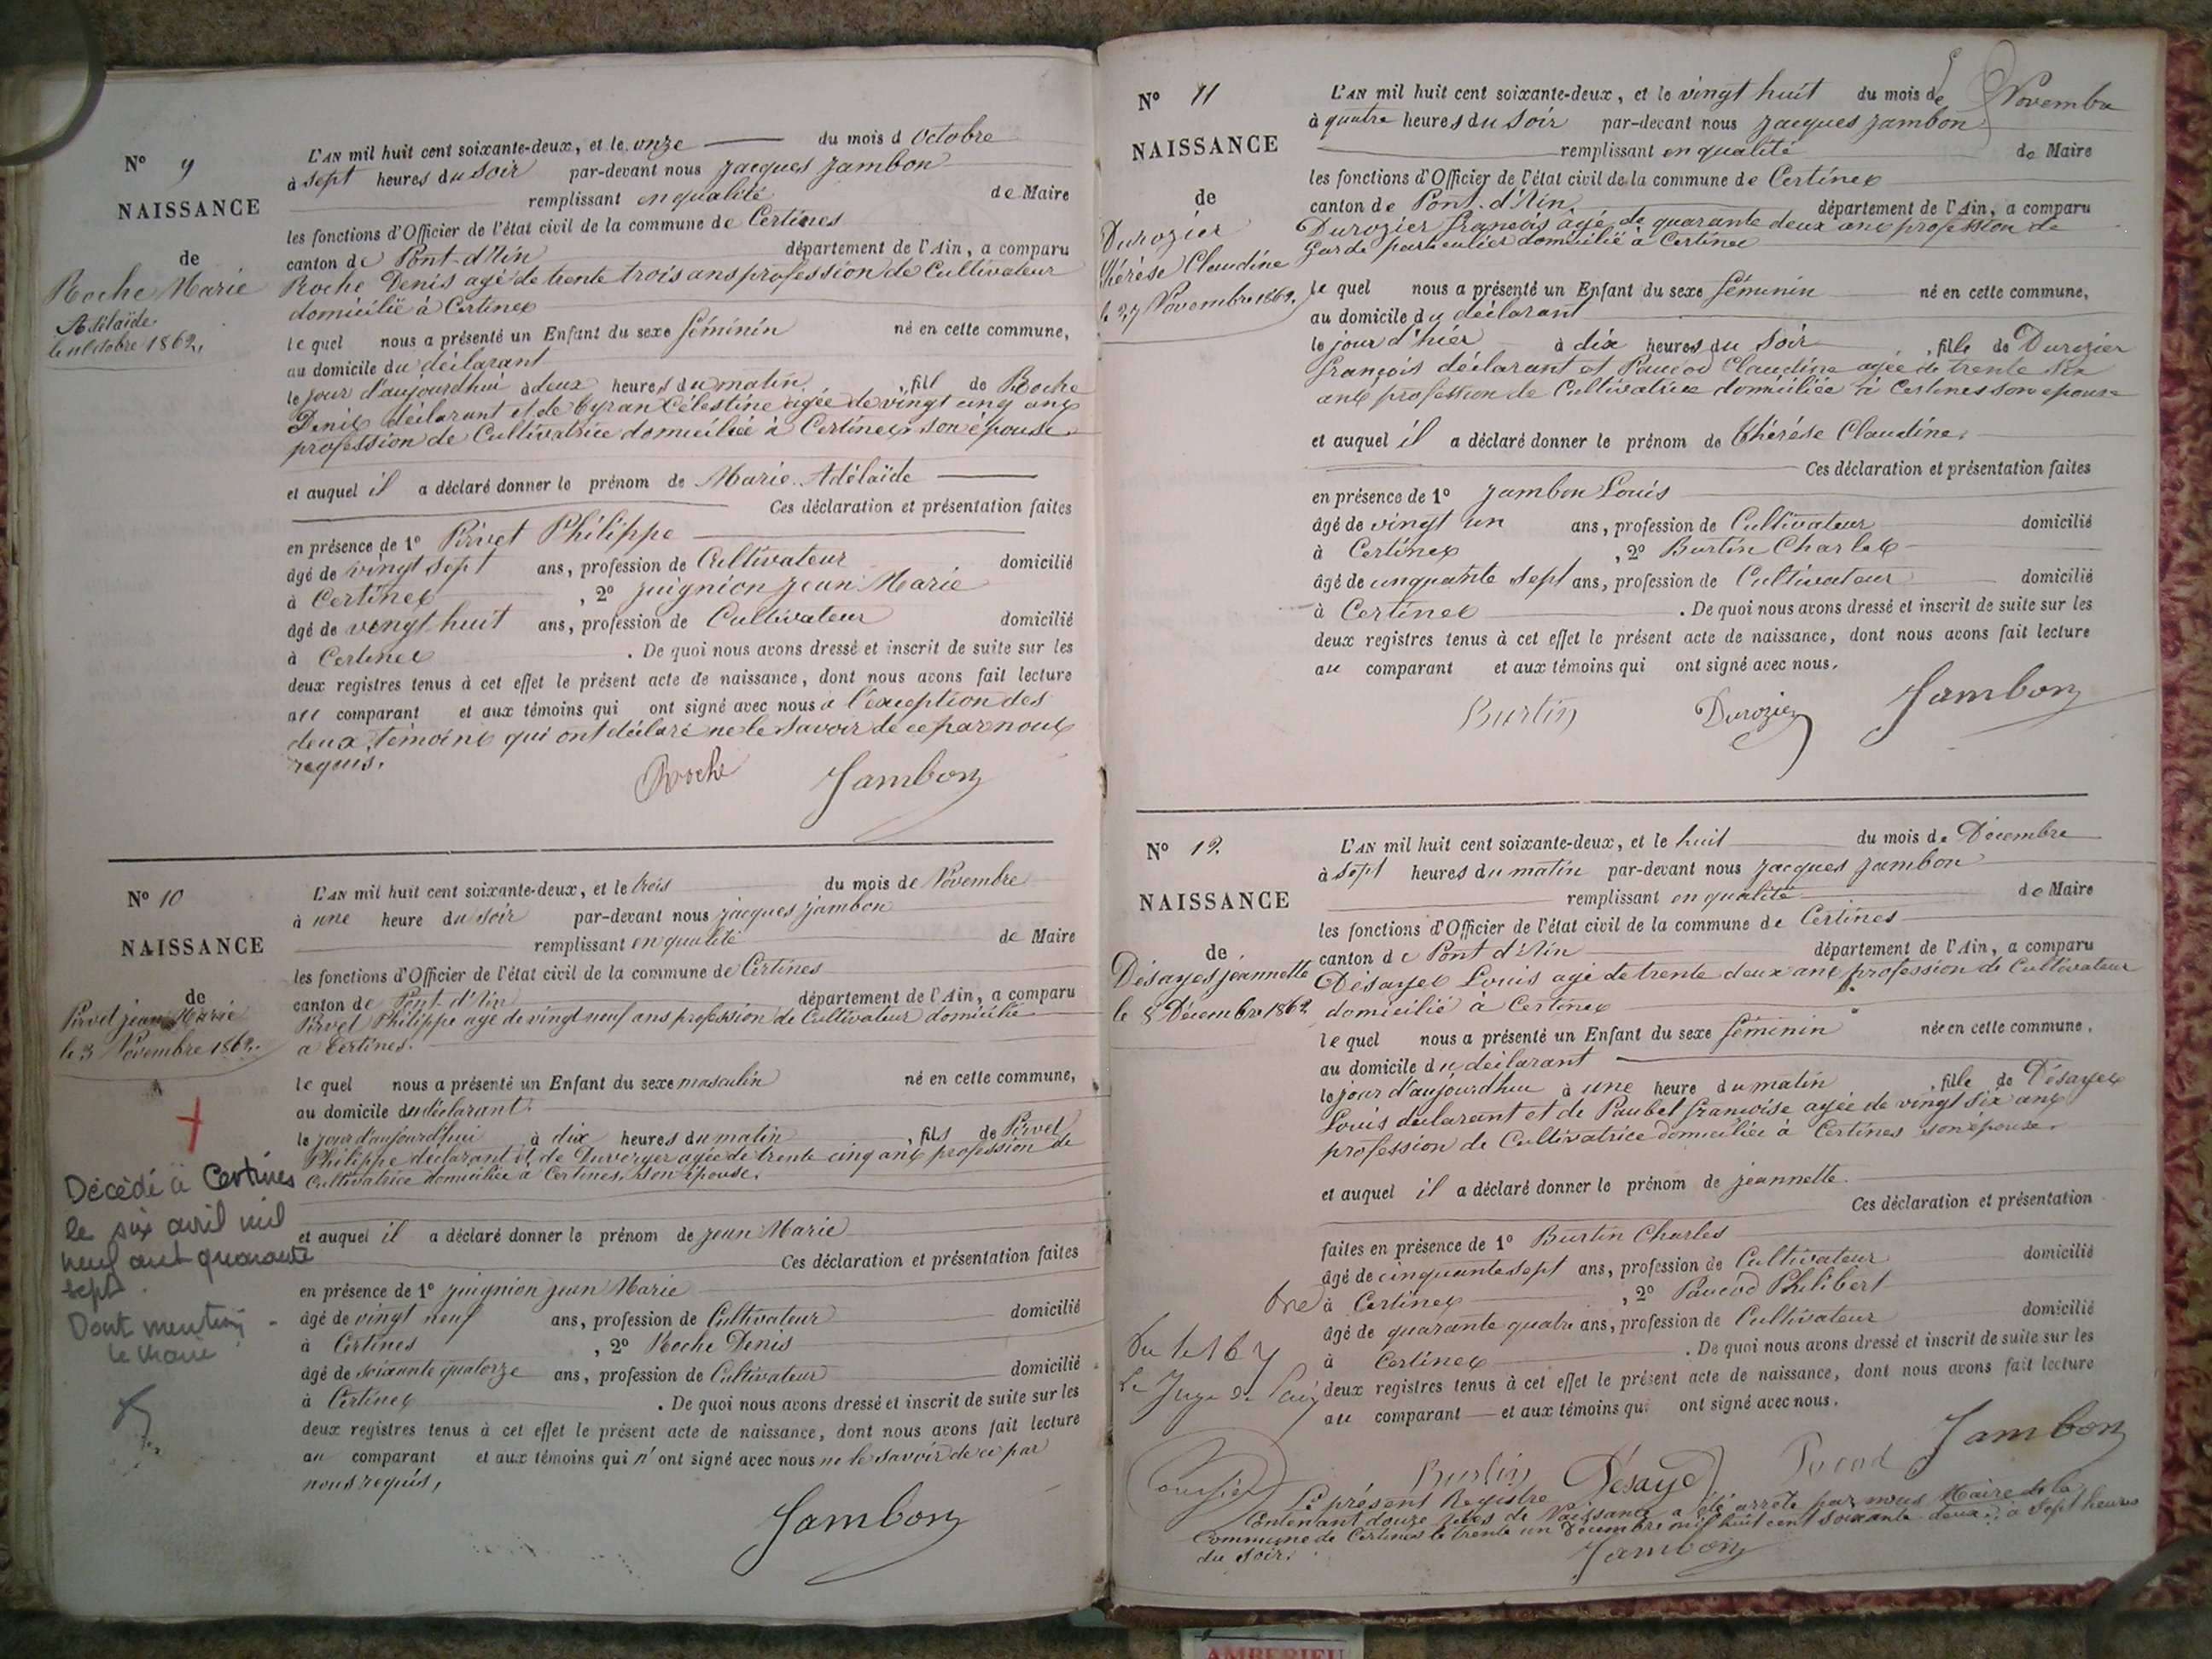 N° 9
NAISSANCE
de
Roche Marie
Adélaïde
le 11 8bre 1862.
L'AN mil huit cent soixante-deux, et le onze du mois d octobre
à sept heures du soir par-devant nous jacques jambon
remplissant en qualité de Maire
les fonctions d'Officier de l'état civil de la commune de Certines
canton de Pont-d'Ain département de l'Ain, a comparu
Roche Denis agé de trente trois ans profession de Cultivateur
domicilié à Certines
lequel nous a présenté un Enfant du sexe féminin né en cette commune,
au domicile du déclarant
le jour d'aujourdhui à deux heures du matin, fill de Roche
Denis déclarant et de Célestine agée de vingt cinq ans
profession de Cultivatrice domiciliée à Certines son épouse
et auquel il a déclaré donner le prénom de Marie Adélaïde
Ces déclaration et présentation faites
en présence de 1° Pirvet Philippe
âgé de vingt sept ans, profession de Cultivateur domicilié
à Certines, 2° juignion jean Marie
âgé de vingt-huit ans, profession de Cultivateur domicilié
à Certines. De quoi nous avons dressé et inscrit de suite sur les
deux registres tenus à cet effet le présent acte de naissance, dont nous avons fait lecture
au comparant et aux témoins qui ont signé avec nous à l'exception des
deux témoins qui ont déclaré ne le savoir de ce par nous
requis.
Roche Jambon
N° 10
NAISSANCE
de
Pirvet jean Marie
le 3 Novembre 1862.
Décédé à Certines
le six avril mil
neuf cent quarante
sept.
Dont mention
le Maire
L'AN mil huit cent soixante-deux, et le trois du mois de Novembre
à une heure du soir par-devant nous jacques jambon
remplissant en qualité de Maire
les fonctions d'Officier de l'état civil de la commune de Certines
canton de Pont-d'Ain département de l'Ain, a comparu
Pirvet Philippe agé de vingt neuf ans profession de Cultivateur domicilié
a Certines.
lequel nous a présenté un Enfant du sexe masculin né en cette commune,
au domicile du déclarant
le jour d'aujourd'hui à dix heures du matin, fils de Pirvet
Philippe déclarant et de Duverger agée de trente cinq ans profession de
Cultivatrice domiciliée à Certines, son épouse.
et auquel il a déclaré donner le prénom de jean Marie
Ces déclaration et présentation faites
en présence de 1° juignion jean Marie
âgé de vingt neuf ans, profession de Cultivateur domicilié
à Certines, 2° Roche Denis
âgé de soixante quatorze ans, profession de Cultivateur domicilié
à Certines. De quoi nous avons dressé et inscrit de suite sur les
deux registres tenus à cet effet le présent acte de naissance, dont nous avons fait lecture
au comparant et aux témoins qui n'ont signé avec nous ne le savoir de ce par
nous requis,
Jambon
N° 11
NAISSANCE
de
Durozier
thérèse Claudine
le 27 Novembre 1862.
L'AN mil huit cent soixante-deux, et le vingt huit du mois de Novembre
à quatre heures du soir par-devant nous jacques jambon
remplissant en qualité de Maire
les fonctions d'Officier de l'état civil de la commune de Certines
canton de Pont-d'Ain département de l'Ain, a comparu
Durozier françois agé de quarante deux ans profession de
garde particulier domicilié à Certines
lequel nous a présenté un Enfant du sexe féminin né en cette commune,
au domicile du déclarant
le jour d'hier à dix heures du soir, fille de Durozier
françois déclarant et Paucod Claudine agée de trente six
ans profession de Cultivatrice domiciliée à Certines son epouse
et auquel il a déclaré donner le prénom de thérèse Claudine.
Ces déclaration et présentation faites
en présence de 1° jambon Louis
âgé de vingt un ans, profession de Cultivateur domicilié
à Certines, 2° Burtin Charles
âgé de cinquante sept ans, profession de Cultivateur domicilié
à Certines. De quoi nous avons dressé et inscrit de suite sur les
deux registres tenus à cet effet le présent acte de naissance, dont nous avons fait lecture
au comparant et aux témoins qui ont signé avec nous.
Burtin Durozier Jambon
N° 12
NAISSANCE
de
Désayes jeannette
le 8 Décembre 1862
L'AN mil huit cent soixante-deux, et le huit du mois de Décembre
à sept heures du matin par-devant nous jacques jambon
remplissant en qualité de Maire
les fonctions d'Officier de l'état civil de la commune de Certines
canton de Pont d'Ain département de l'Ain, a comparu
Désayes Louis agé de trente deux ans profession de Cultivateur
domicilié à Certines
lequel nous a présenté un Enfant du sexe féminin née en cette commune,
au domicile du déclarant
le jour d'aujourdhui à une heure du matin, fille de Désayes
Louis déclarant et de Paubel françoise agée de vingt six ans
profession de Cultivatrice domiciliée à Certines son épouse.
et auquel il a déclaré donner le prénom de jeannette.
Ces déclaration et présentation
faites en présence de 1° Burtin Charles
âgé de cinquante sept ans, profession de Cultivateur domicilié
à Certines, 2° Paucod Philibert
âgé de quarante quatre ans, profession de Cultivateur domicilié
à Certines. De quoi nous avons dressé et inscrit de suite sur les
deux registres tenus à cet effet le présent acte de naissance, dont nous avons fait lecture
au comparant et aux témoins qui ont signé avec nous.
Le Juge de Paix
Burtin Désayes Pocod Jambon
Le présent Registre
Contenant douze actes de Naissance a été arrêté par nous Maire de la
Commune de Certines le trente un Décembre mil huit cent soixante deux à sept heures
du soir.
Jambon
AMBERIEU